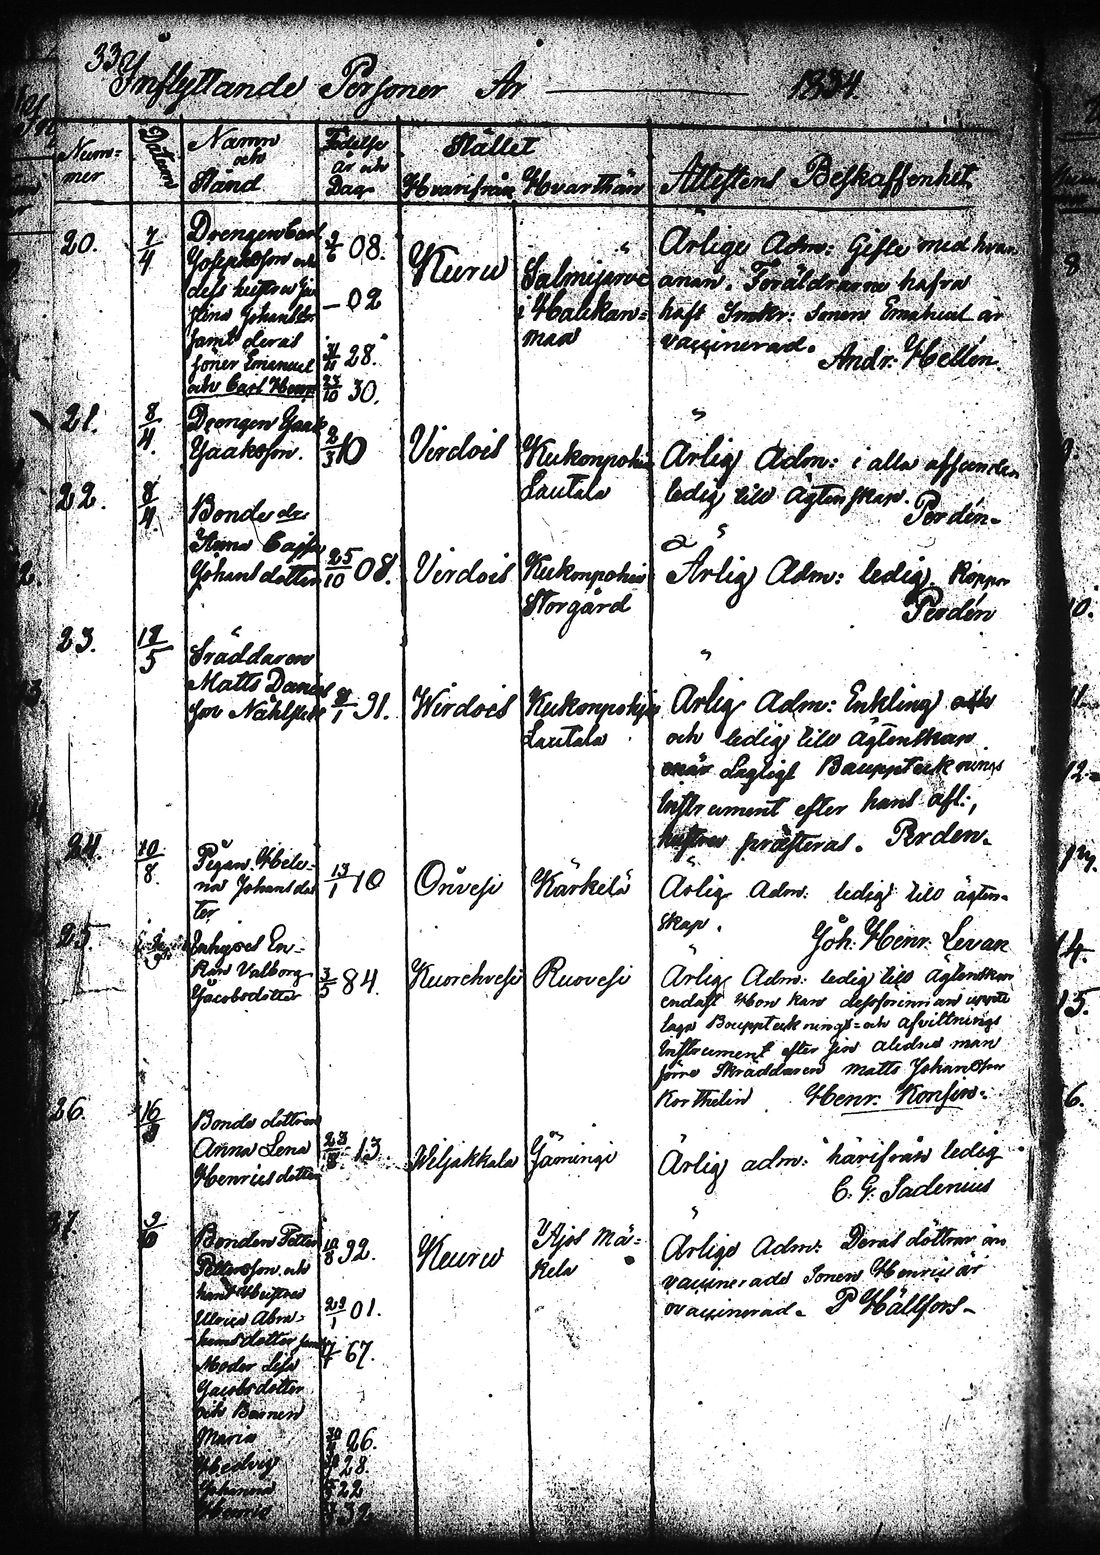 33
Inflyttande Personer År 1834
Num-
mer
Datum
Namn
och
Stånd
Födelse
år och
Dag
Stället
Hvarifrån Hvarthän
Attestens Beskaffenhet
20. 7/4
Drengen Carl
Josephsson och
dess hustru
Johansdr
samt deras
söner Emanuel
och Carl Henr
2/6 08.
— 02
28.
23/10 30.
Keuru
Salmijervi
i Haukan-
maa
Ärlige Adm: Gifte med hvar
anan. Föräldrarne hafva
haft Smkr: Sonen Emanuel är
vaccinerad.
Andr. Hellén.
21. 8/4.
Drengen Jaak
Jaaksson.
2/3 10
Virdois
Kukonpohia
Lautala
Ärlig Adm: i alla afseenden
ledig till ägtenskap.
Perdén.
22. 8/4.
Bonde dr
Anna Cajsa
Johansdotter
25/10 08.
Virdois
Kukonpohia
Storgård
Ärlig Adm: ledig. Koppor
Perdén
23. 18/5
Sräddaren
Matts Daniel
son
8/1 91.
Wirdois
Kukonpohja
Lautala
Ärlig Adm: Enkling
och ledig till ägtenskap
när Lagligt Bouppteknings
Instrument efter hans afl:,
hustru præsteras. Perden.
24. 10/8.
Pigan Hele-
na Johansdot
ter
13/1 10
Orivesi
Kärkelä
Ärlig Adm: ledig till ägten-
skap.
Joh. Henr. Levan
25.
Inhyses En-
kan Valborg
Jacobsdotter
3/5 84.
Kuorehvesi
Ruovesi
Ärlig Adm: ledig till Ägtenskap
endast Hon kan dessförinnan uppte
Lagn Bouppteknings- och afvittnings
Instrument efter sin aledne man
förre Skräddaren Matts Johansson
Korthelin Henr. Konsin.
26. 16/9
Bonde dottren
Anna Lena
Henricsdotter
28/8. 13.
Wiljakkala
Jäminge
Ärlig adm: härifrån ledig
C. G. Sadenius
27. 9/10
Bonden Petter
Pettersson och
hans Hustru
Ulrica Abra-
hamsdotter samt
Moder Lisa
Jacobsdotter
och Barnen
Maria
Hedvig
Johanna
Henric
10/8 92.
29/1 01.
67.
26.
28.
22
32
Keuru
Ajos Mä-
kelä
Ärlige Adm: Deras döttrar än
vaccinerade Sonen Henric är
ovaccinerad. P Hällfors-